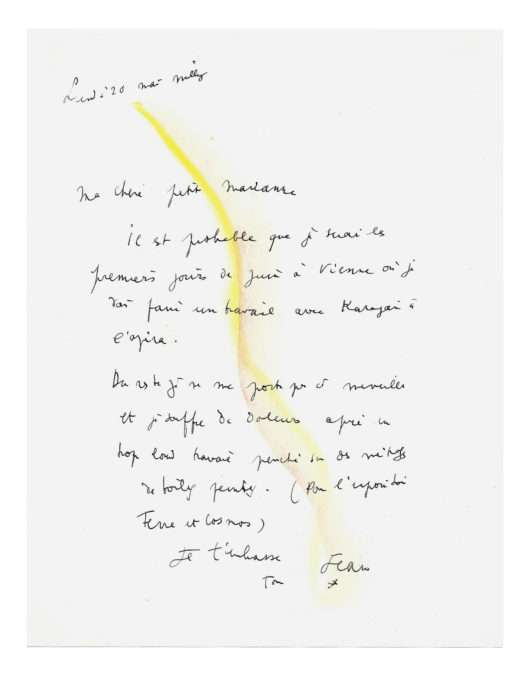 Lundi 20 mai Milly
Ma chère petite Marianne
Il est probable que je serai les
premiers jours de juin à Vienne où je
dois faire un travail avec Karajan à
l'opéra.
Du reste je ne me porte pas à merveille
et je souffre de douleurs après un
trop lourd travail penché sur des mètres
de toiles peintes. (Pour l'exposition
Terre et Cosmos)
Je t'embrasse
Ton Jean
*